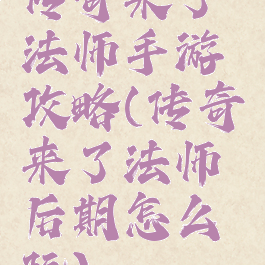 传奇来了
法师手游
攻略(传奇
来了法师
后期怎么
玩)